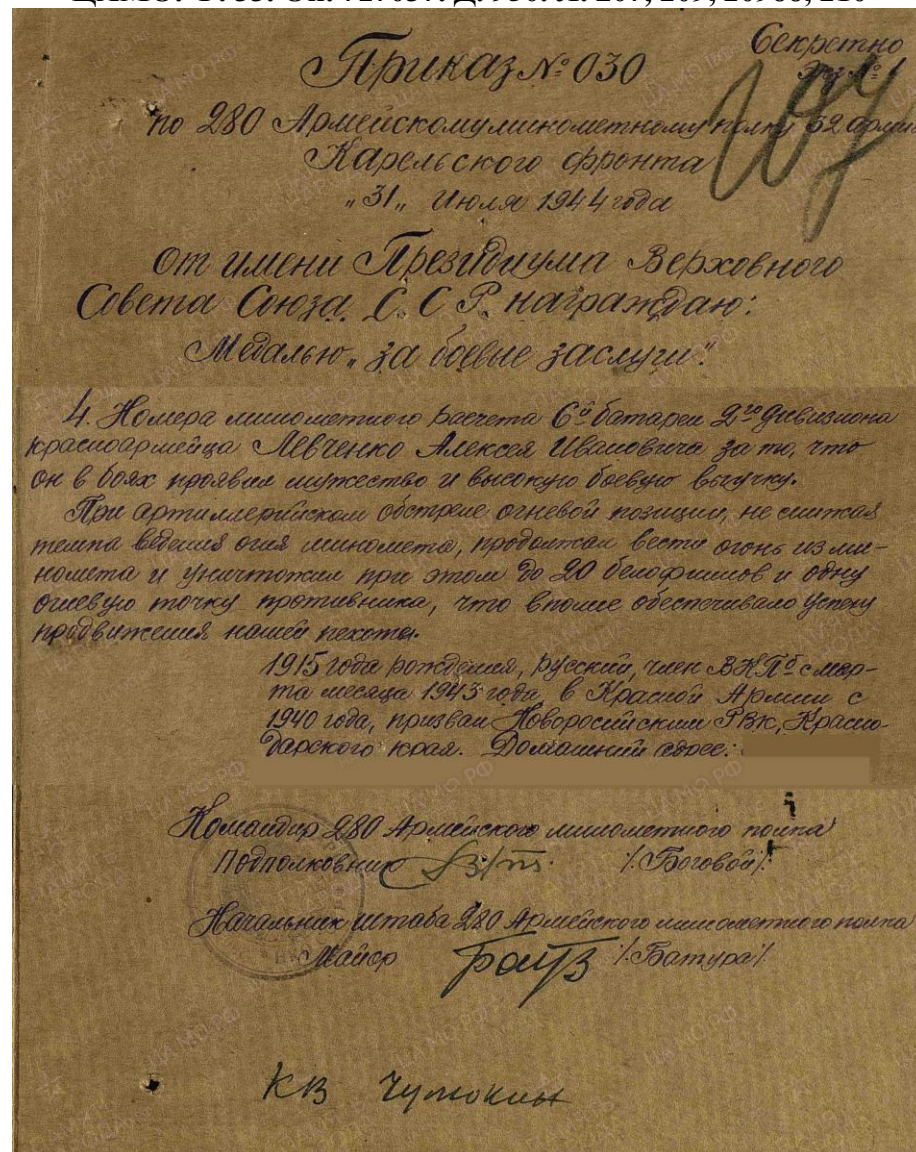 ЦАМО. Ф. 33. Оп. 727037. Д. 930. Л. 207, 209, 209об, 210
Секретно
Экз № 1
Приказ № 030
по 280 Армейскому минометному полку 32 армии
Карельского фронта
"31" Июля 1944 года
от имени Президиума Верховного
Совета Союза С. С. Р. награждаю:
Медалью "за боевые заслуги".
4. Номера минометного расчета 6й батареи 2го дивизиона
красноармейца Левченко Алексея Ивановича за то, что
он в боях проявил мужество и высокую боевую выучку.
При артиллерийском обстреле огневой позиции, не снижая
темпа ведения огня миномета, продолжал вести огонь из ми-
номета и уничтожил при этом до 20 белофинов и одну
огневую точку противника, что вполне обеспечивало успех
продвижения нашей пехоты.
1915 года рождения, русский, член ВКПб с мар-
та месяца 1943 года, в Красной Армии с
1940 года, призван Новоросийским РВК, Красно-
дарского края. Домашний адрес:
Командир 280 Армейского минометного полка
Подполковник /. Боговой /.
Начальник штаба 280 Армейского минометного полка
Майор /. Батура /.
КВ